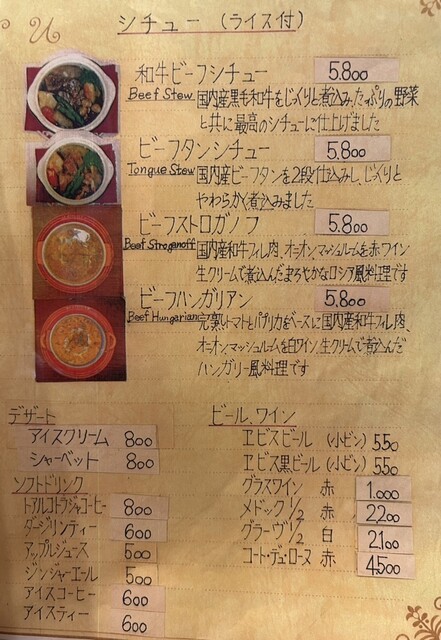 シチュー (ライス付)
和牛ビーフシチュー 5.800
Beef Stew 国内産黒毛和牛をじっくりと煮込み、たっぷりの野菜
と共に最高のシチューに仕上げました
ビーフタンシチュー 5.800
Tongue Stew 国内産ビーフタンを2段仕込みし、じっくりと
やわらかく煮込みました
ビーフストロガノフ 5.800
Beef Stroganoff 国内産和牛フィレ肉、オニオンマッシュルームを赤ワイン
生クリームで煮込んだまろやかなロシア風料理です
ビーフハンガリアン 5.800
Beef Hungarian 完熟トマトとパプリカをベースに国内産和牛フィレ肉、
オニオンマッシュルームを白ワイン、生クリームで煮込んだ
ハンガリー風料理です
デザート
アイスクリーム 800
シャーベット 800
ソフトドリンク
トアルコトラジャコーヒー 800
ダージリンティー 600
アップルジュース 500
ジンジャーエール 500
アイスコーヒー 600
アイスティー 600
ビール、ワイン
ヱビスビール (小ビン) 550
ヱビス黒ビール (小ビン) 550
グラスワイン 赤 1.000
メドック 1/2 赤 2.200
グラーヴ 1/2 白 2.100
コート・デュ・ローヌ 赤 4.500